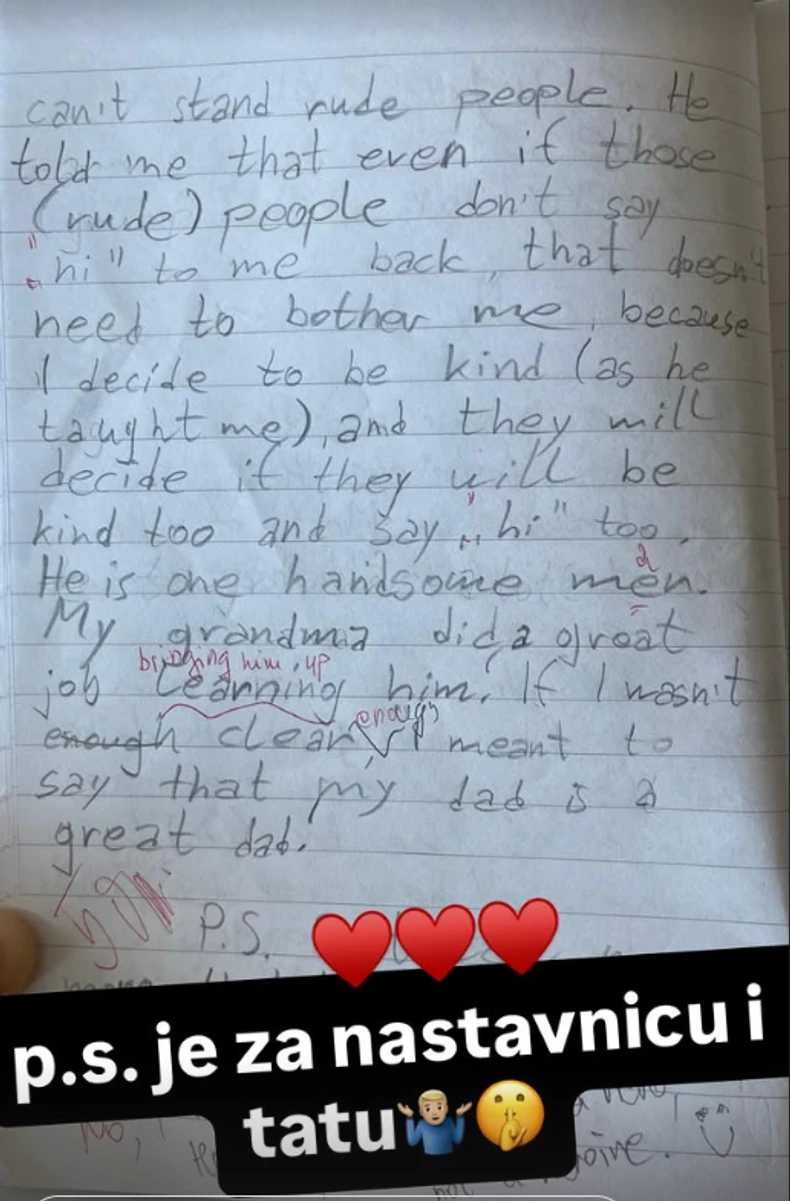 can't stand rude people. He
told me that even if those
(rude) people don't say
"„hi" to me back, that doesn't
need to bother me, because
I decide to be kind (as he
taught me), and they will
decide if they will be
kind too and say „hi" too.
a
He is one handsome men.
My grandma did a great
bringing him up
job learning him. If I wasn't
enough
enough clear I meant to
say that my dad is a
great dad.
P.S.
p.s. je za nastavnicu i
tatu🤷🏼‍♂️🤫
No,